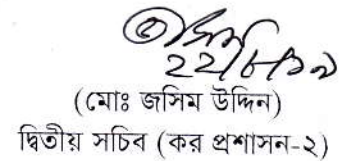 ২২/৮/১৯
(মোঃ জসিম উদ্দিন)
দ্বিতীয় সচিব (কর প্রশাসন-২)